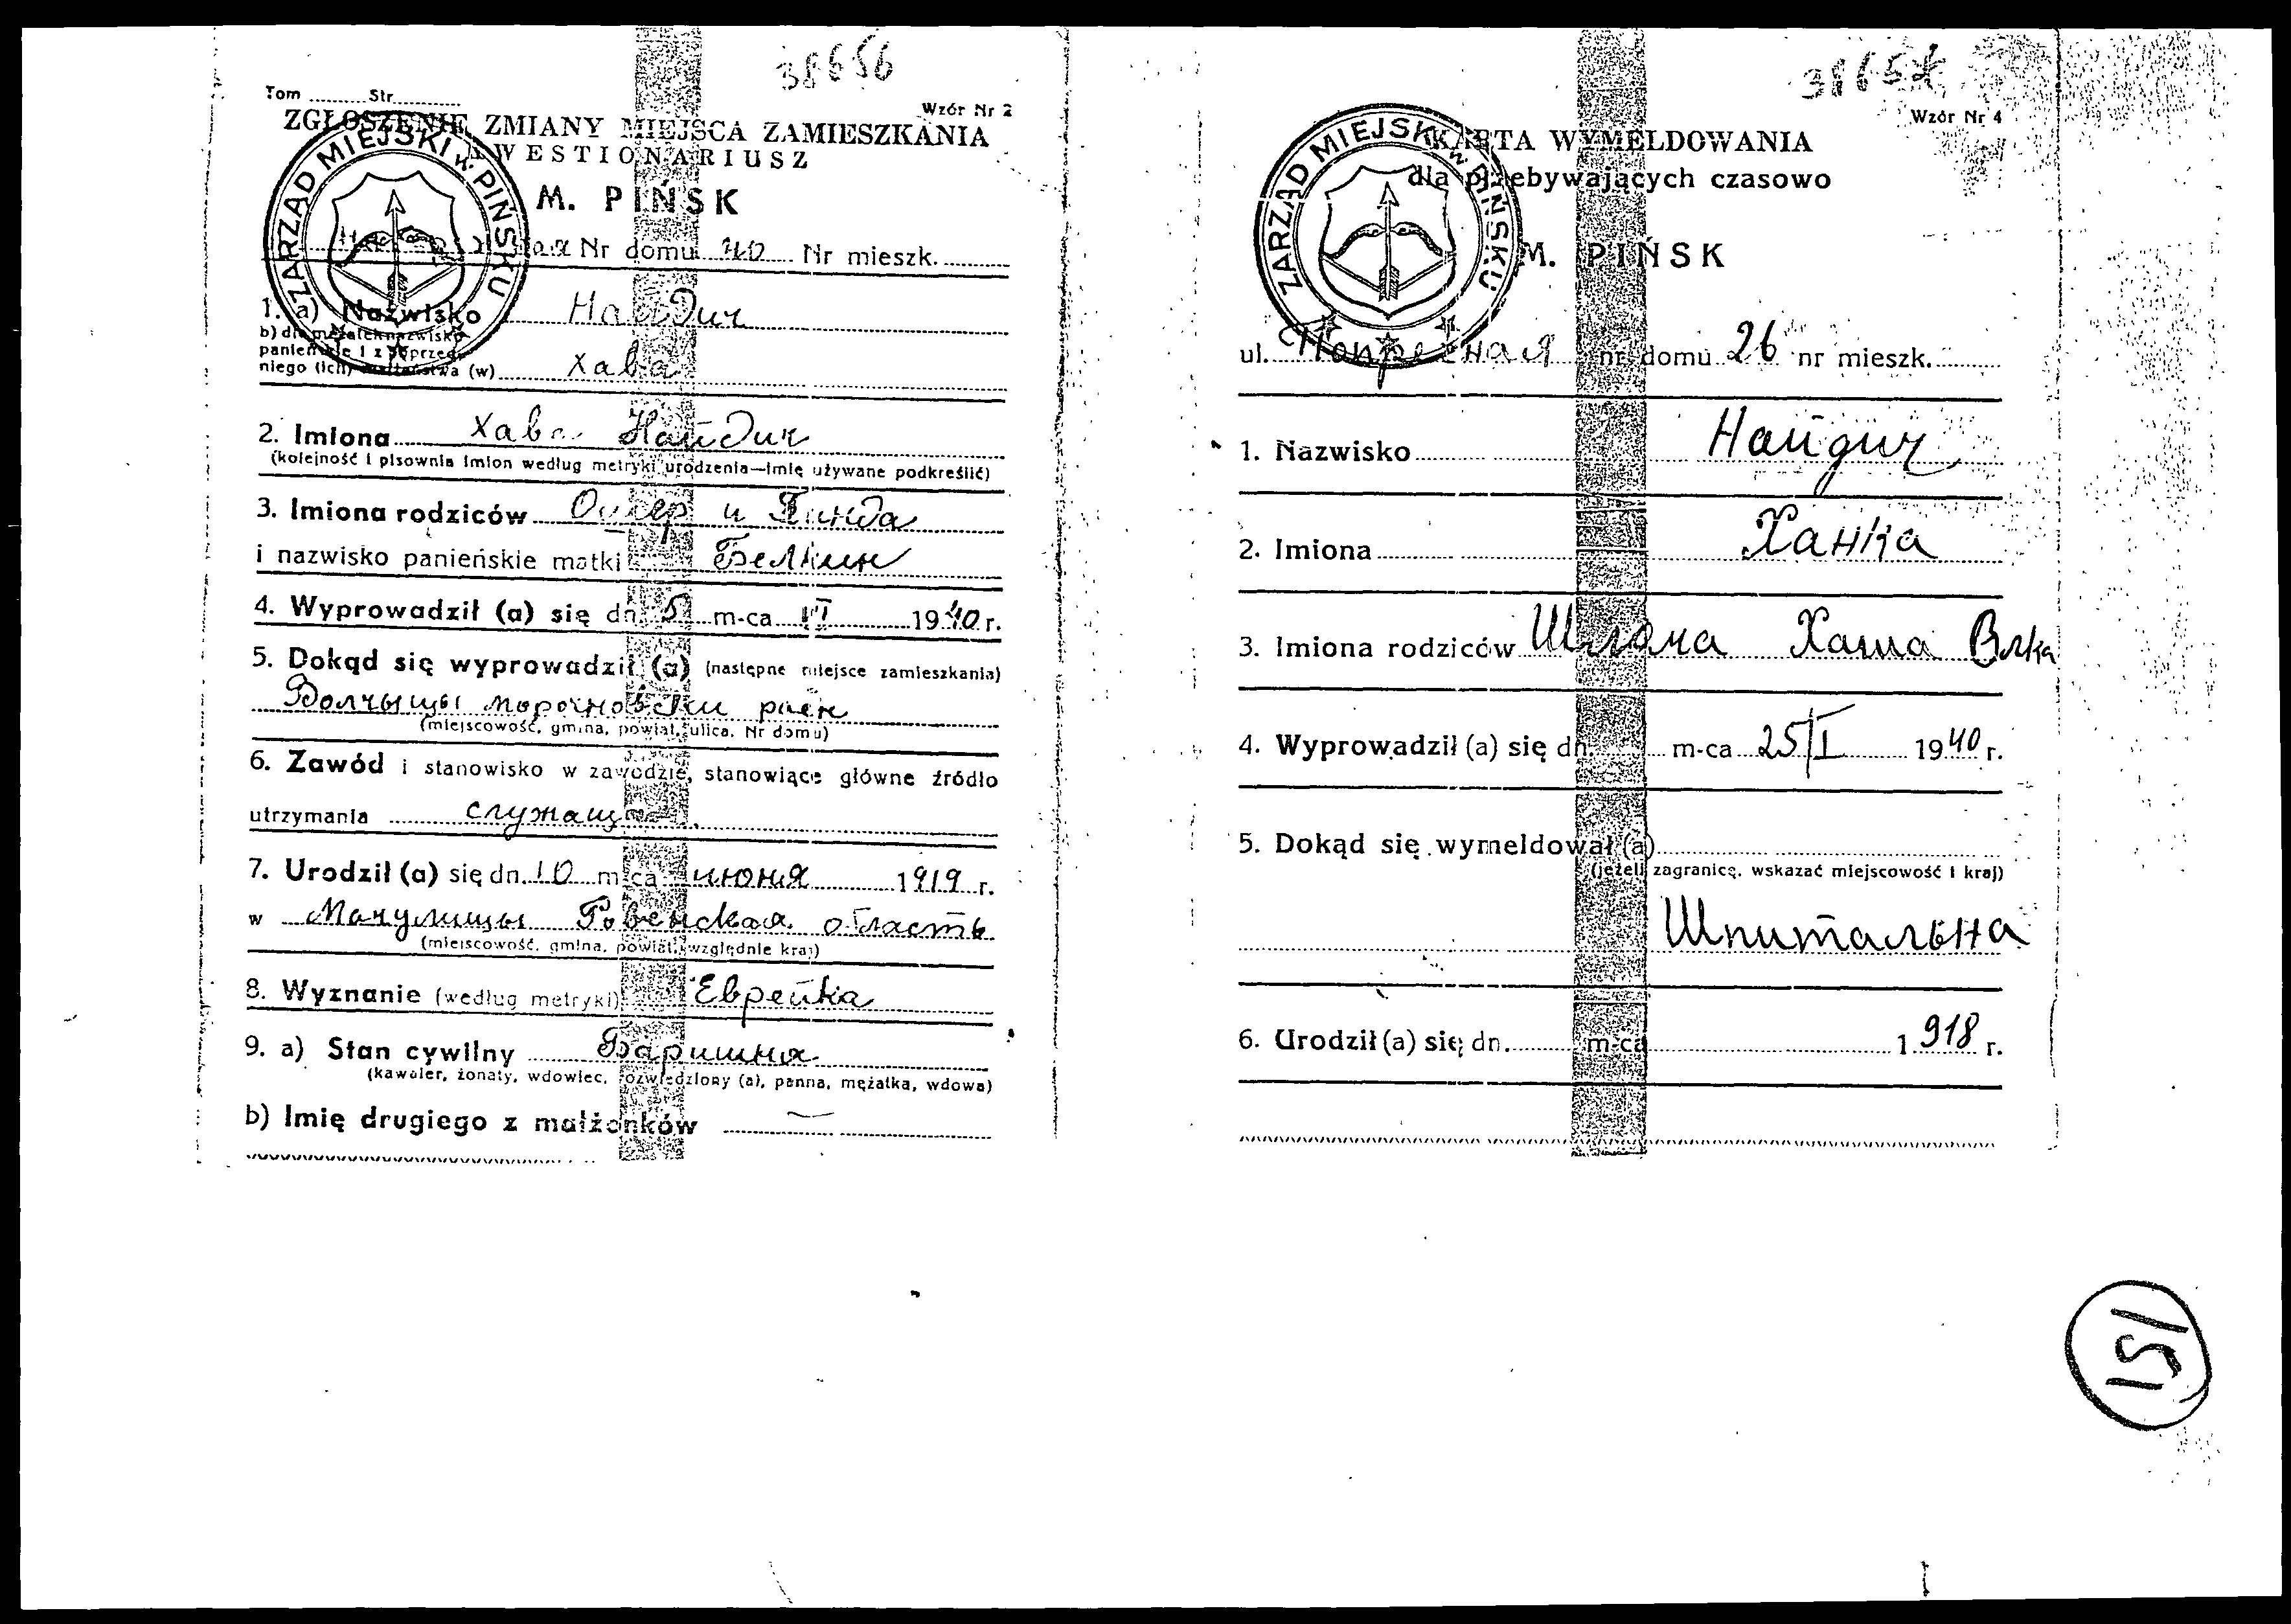 38656
Tom ........ Str. ........
Wzór Nr 2
ZGŁOSZENIE ZMIANY MIEJSCA ZAMIESZKANIA
KWESTIONARIUSZ
ZARZĄD MIEJSKI w PIŃSKU
M. PIŃSK
Nr domu 40 Nr mieszk.
1. a) Nazwisko Найдич
b) dla mężatek nazwisko
panieńskie i z poprzed-
niego (ich) małżeństwa (w) Хава
2. Imiona Хава Найдич
(kolejność i pisownia imion według metryki urodzenia—imię używane podkreślić)
3. Imiona rodziców и
i nazwisko panieńskie matki Белкин
4. Wyprowadził (a) się dn. 5 m-ca VI 1940 r.
5. Dokąd się wyprowadził (a) (następne miejsce zamieszkania)
Волчыцы морочновски раен
(miejscowość, gmina, powiat, ulica, Nr domu)
6. Zawód i stanowisko w zawodzie, stanowiące główne źródło
utrzymania служащ
7. Urodził (a) się dn. 10 m-ca июня 1919 r.
w Ровенская область
(miejscowość, gmina, powiat, względnie kraj)
8. Wyznanie (według metryki) Еврейка
9. a) Stan cywilny Баришня
(kawaler, żonaty, wdowiec, rozwiedziony (a), panna, mężatka, wdowa)
b) Imię drugiego z małżonków —
Wzór Nr 4
KARTA WYMELDOWANIA
dla przebywających czasowo
ZARZĄD MIEJSKI w PIŃSKU
M. PIŃSK
ul. Попречная nr domu 26 nr mieszk.
1. Nazwisko Найдич
2. Imiona Ханка
3. Imiona rodziców Шлома Хаша
4. Wyprowadził (a) się dn. m-ca 25/I 1940 r.
5. Dokąd się wymeldował (a)
(jeżeli zagranicę, wskazać miejscowość i kraj)
Шпитальна
6. Urodził (a) się dn. m-ca 1918 r.
151